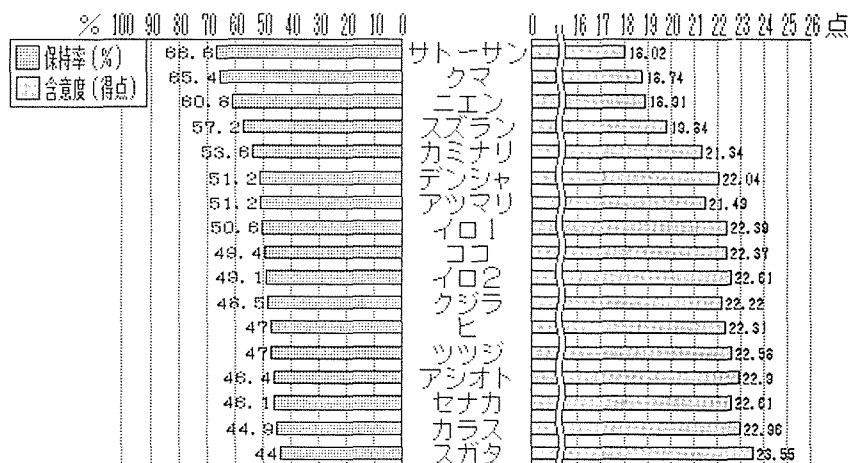 % 100 90 80 70 60 50 40 30 20 10 0 0 16 17 18 19 20 21 22 23 24 25 26 点
保持率(%)
含意度(得点)
66.6 サトーサン 18.02
65.4 クマ 18.74
60.6 ニエン 18.91
57.2 スズラン 19.84
53.6 カミナリ 21.34
51.2 デンシャ 22.04
51.2 アツマリ 21.49
50.6 イロ1 22.39
49.4 ココ 22.37
49.1 イロ2 22.61
48.5 クジラ 22.22
47 ヒ 22.31
47 ツツジ 22.56
46.4 アシオト 22.9
46.1 セナカ 22.61
44.9 カラス 22.96
44 スガタ 23.55